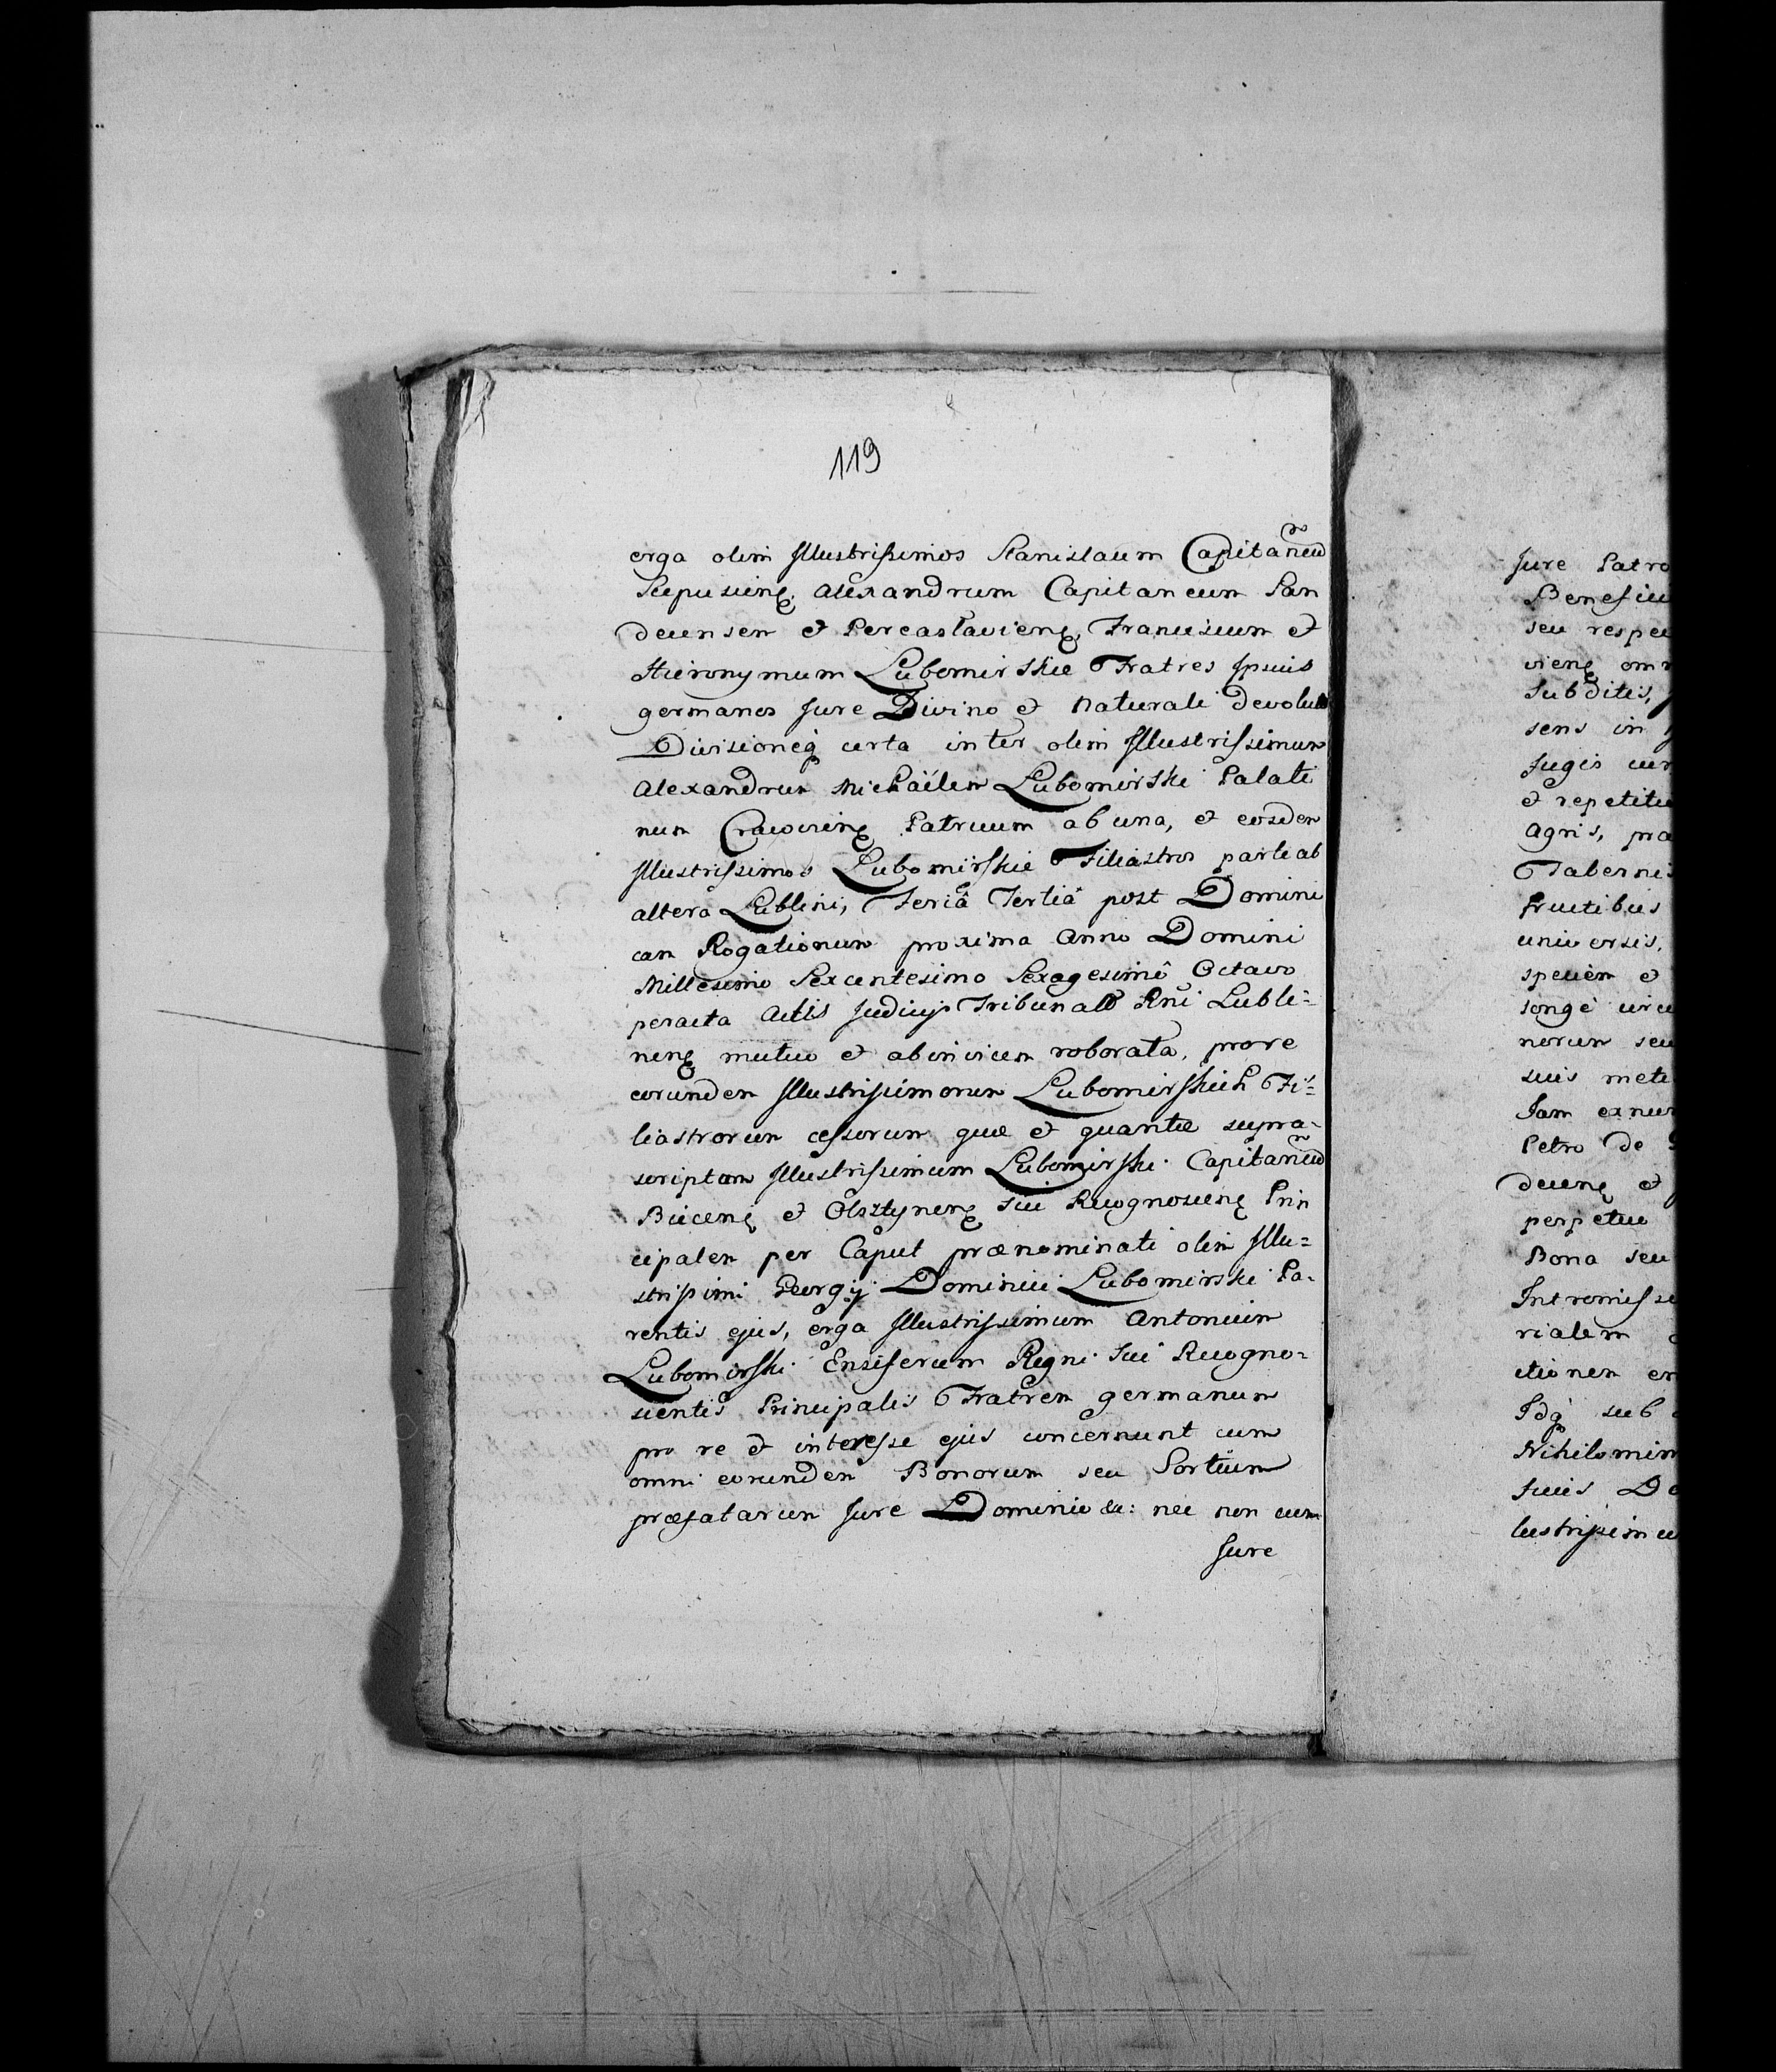 119
erga olim Illustrissimos Stanislaum Capitaneũ
Scepusienę, Alexandrum Capitaneum San
decensem et Pereaslavienę, Franciscum et
Hieronymum Lubomirskie Fratres Ipsius
germanos Jure Divino et Naturali devolut
Divisioneq́ certa inter olim Illustrissimum
Alexandrum Michaëlem Lubomirski Palati
num Cracovienę Patruum ab una, et eosdem
Illustrissimos Lubomirskie Filiastros parte ab
altera Lublini, Feriâ Tertiâ post Domini
cam Rogationum proxima Anno Domini
Millesimo Sexcentesimo Sexagesimô Octavo
peracta Actis Judicij Tribunal Rni Lubli=
nenę mutuo et abinvicem roborata, pro re
eorundem Illustrissimorum Lubomirskich Fi=
liastrorum cessorum quæ et quantæ supra-
scriptam Illustrissimum Lubomirski Capitaneũ
Biecenę et Olsztynenę sui Recognoscenę Prin
cipalem per Caput prænominati olim Illu=
strissimi Georgij Dominici Lubomirski Pa-
rentis ejus, erga Illustrissimum Antonium
Lubomirski Ensiferum Regni sui Recogno=
scentis Principalis Fratrem germanum
pro re et interesse ejus concernunt cum
omni eorundem Bonorum seu Sortium
præfatarum Jure Dominio &c: nec non cum
Jure
Jure Patro
Benefici
seu respec
vienę om
Subditis,
sens in
Jugis cur
et repetitu
Agris, pra
Tabernis
fructibus
universis,
speciem et
longè circu
norum seu
suis mete
Jam ex nun
Petro de
decenę et
perpetuo
Bona seu
Intromisse
rialem
ctionem en
Idq́ sub
Nihilomin
suis Do
lustrissimu